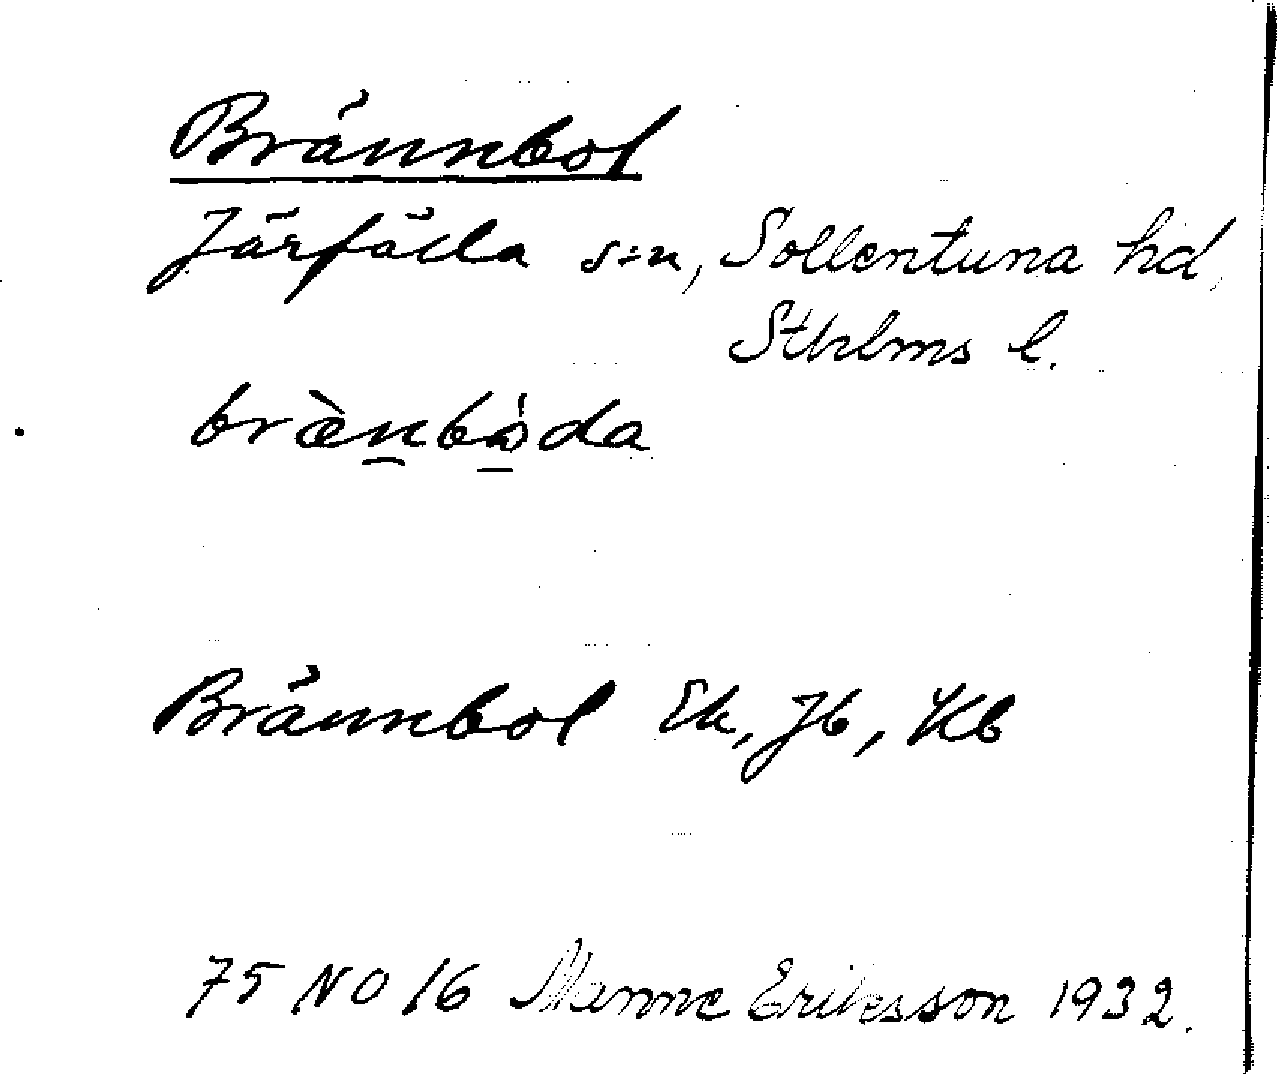 Brännbol
Järfälla s:n, Sollentuna hd,
Sthlms l.
bræ̀nbå̀da
Brännbol Ek, Jb, Kb
75 NO 16 Manne Eriksson 1932.